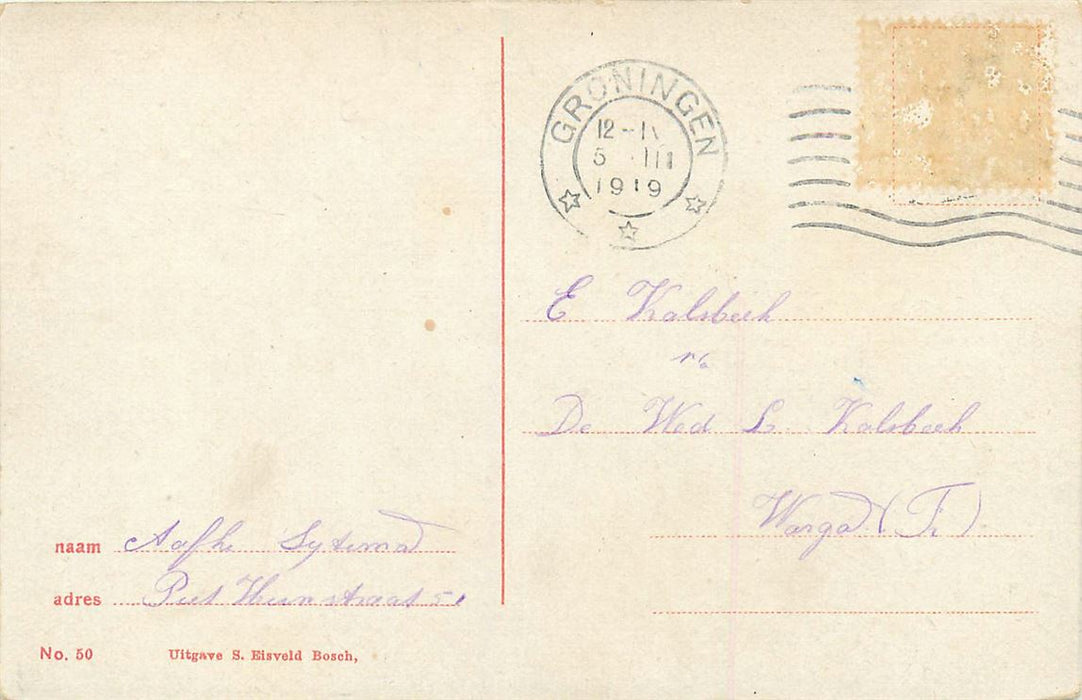 GRONINGEN
12-
5 III
1919
E Kalsbeek
De Wed L. Kalsbeek
Warga (Fr)
naam Aafke Sytsma
adres Piet Heinstraat 51
No. 50 Uitgave S. Eisveld Bosch,